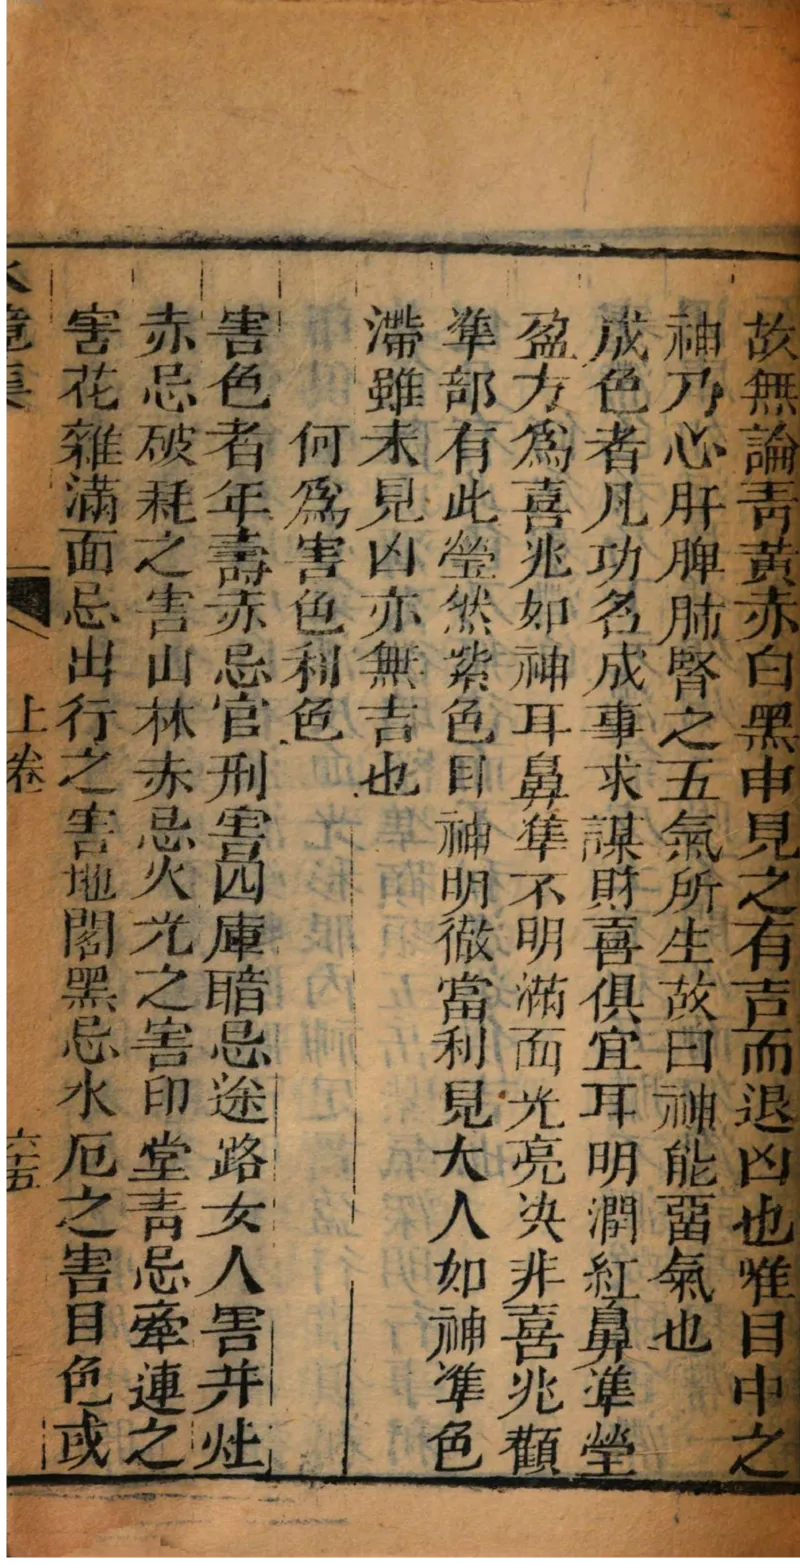 故無論靑黃赤白黑申見之有吉而退凶也惟目中之
神乃心肝脾肺腎之五氣所生故曰神能畱氣也
成色者凡功名成事求謀財喜俱宜耳明潤紅鼻準瑩
盈方爲喜兆如神耳鼻準不明滿面光亮决非喜兆顴
準部有此瑩然紫色目神明徹當利見大人如神準色
滯雖未見凶亦無吉也
何爲害色利色
害色者年壽赤忌官刑害四庫暗忌途路女人害井灶
赤忌破耗之害山林赤忌火光之害印堂靑忌牽連之
害花雜滿面忌出行之害地閣黑忌水厄之害目色或
水鏡集
上卷
六五